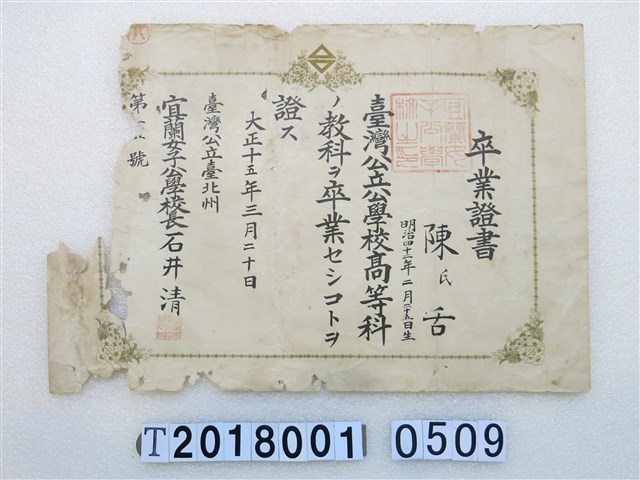 卒業證書
陳氏舌
明治四十二年二月二十五日生
臺灣公立公學校高等科
ノ教科ヲ卒業セシコトヲ
證ス
大正十五年三月二十日
臺灣公立臺北州
宜蘭女子公學校長石井清
第 號
T2018001 0509